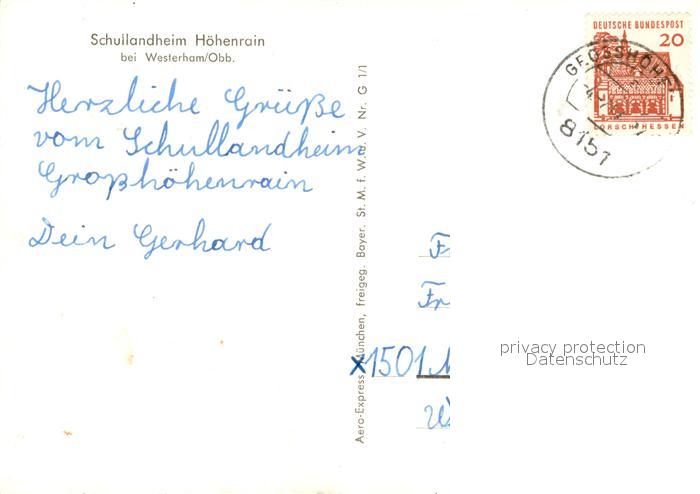 Schullandheim Höhenrain
bei Westerham/Obb.
Herzliche Grüße
vom Schullandheim
Großhöhenrain
Dein Gerhard
Aero-Express München, freigeg. Bayer. St. M. f. W. u. V. Nr. G 1/1
DEUTSCHE BUNDESPOST
20
LORSCH/HESSEN
GROSSHÖHE
8151
F
Fr
x1501
privacy protection
Datenschutz